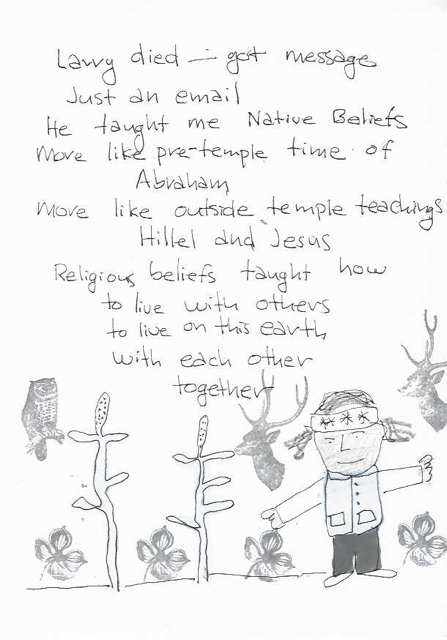 Larry died – got message
Just an email
He taught me Native Beliefs
More like pre-temple time of
Abraham
More like outside temple teachings
Hillel and Jesus
Religious beliefs taught how
to live with others
to live on this earth
with each other
together